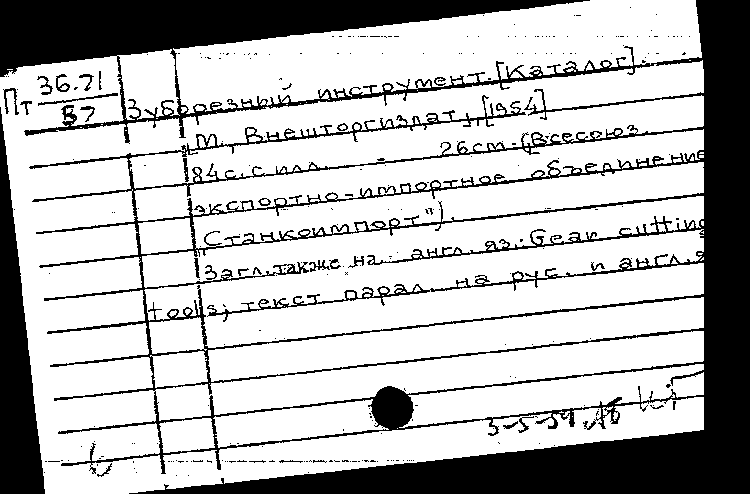 Пт 36.71
37 Зуборезный инструмент. [Каталог].
М., Внешторгиздат, [1954]
84с. с илл. - 26см. (Всесоюз.
экспортно-импортное объединение
„Станкоимпорт").
Загл. также на англ. яз.: Gear cutting
tools; текст парал. на рус. и англ. я
3-5-54